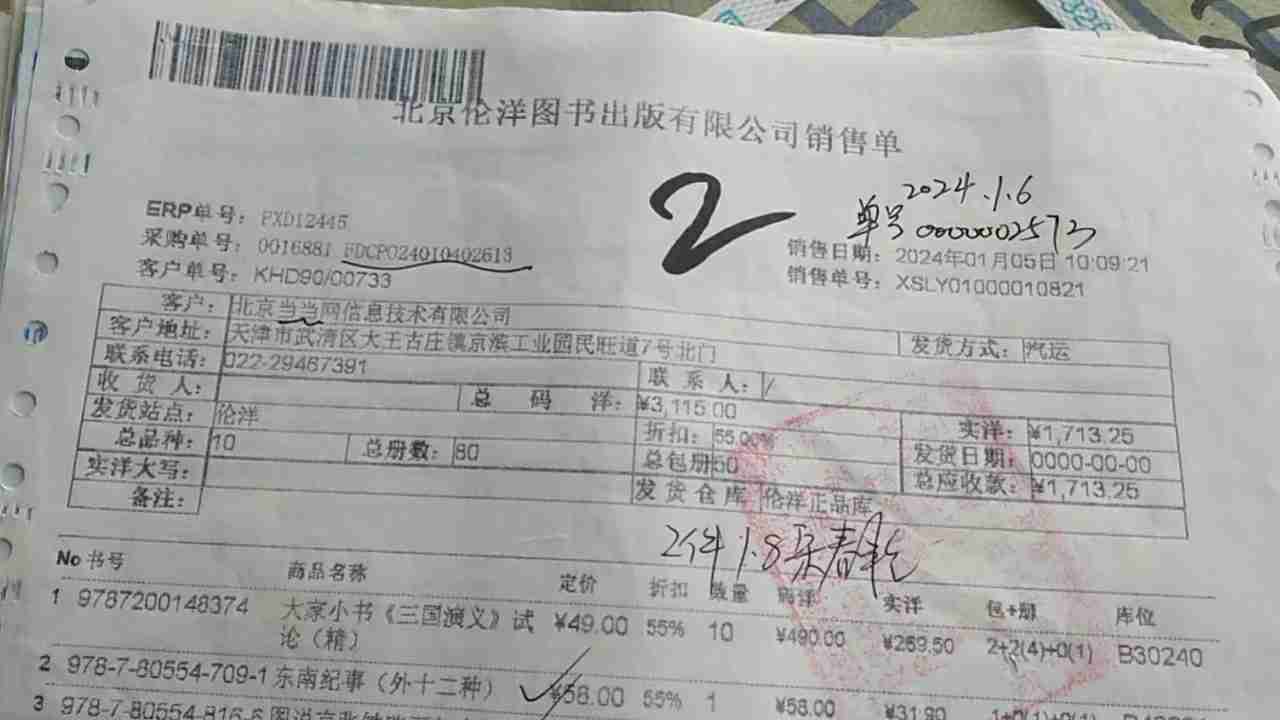 北京伦洋图书出版有限公司销售单
2
2024.1.6
单号0000002573
ERP单号：PXD12445
采购单号：0016881 BDCP024010402613
客户单号：KHD90/00733
销售日期：2024年01月05日 10:09:21
销售单号：XSLY01000010821
客户：北京当当网信息技术有限公司
客户地址：天津市武清区大王古庄镇京滨工业园民旺道7号北门 发货方式：汽运
联系电话：022-29467391 联系人：/
收货人： 总码洋：¥3,115.00
发货站点：伦洋 折扣：55.00% 实洋：¥1,713.25
总品种：10 总册数：80 总包册50 发货日期：0000-00-00
实洋大写： 发货仓库 伦洋正品库 总应收款：¥1,713.25
备注：
2件 1.8
No 书号 商品名称 定价 折扣 数量 码洋 实洋 包+册 库位
1 9787200148374 大家小书《三国演义》试论（精） ¥49.00 55% 10 ¥490.00 ¥269.50 2+2(4)+0(1) B30240
2 978-7-80554-709-1 东南纪事（外十二种） ¥58.00 55% 1 ¥58.00 ¥31.90
3 978-7-80554-816-6